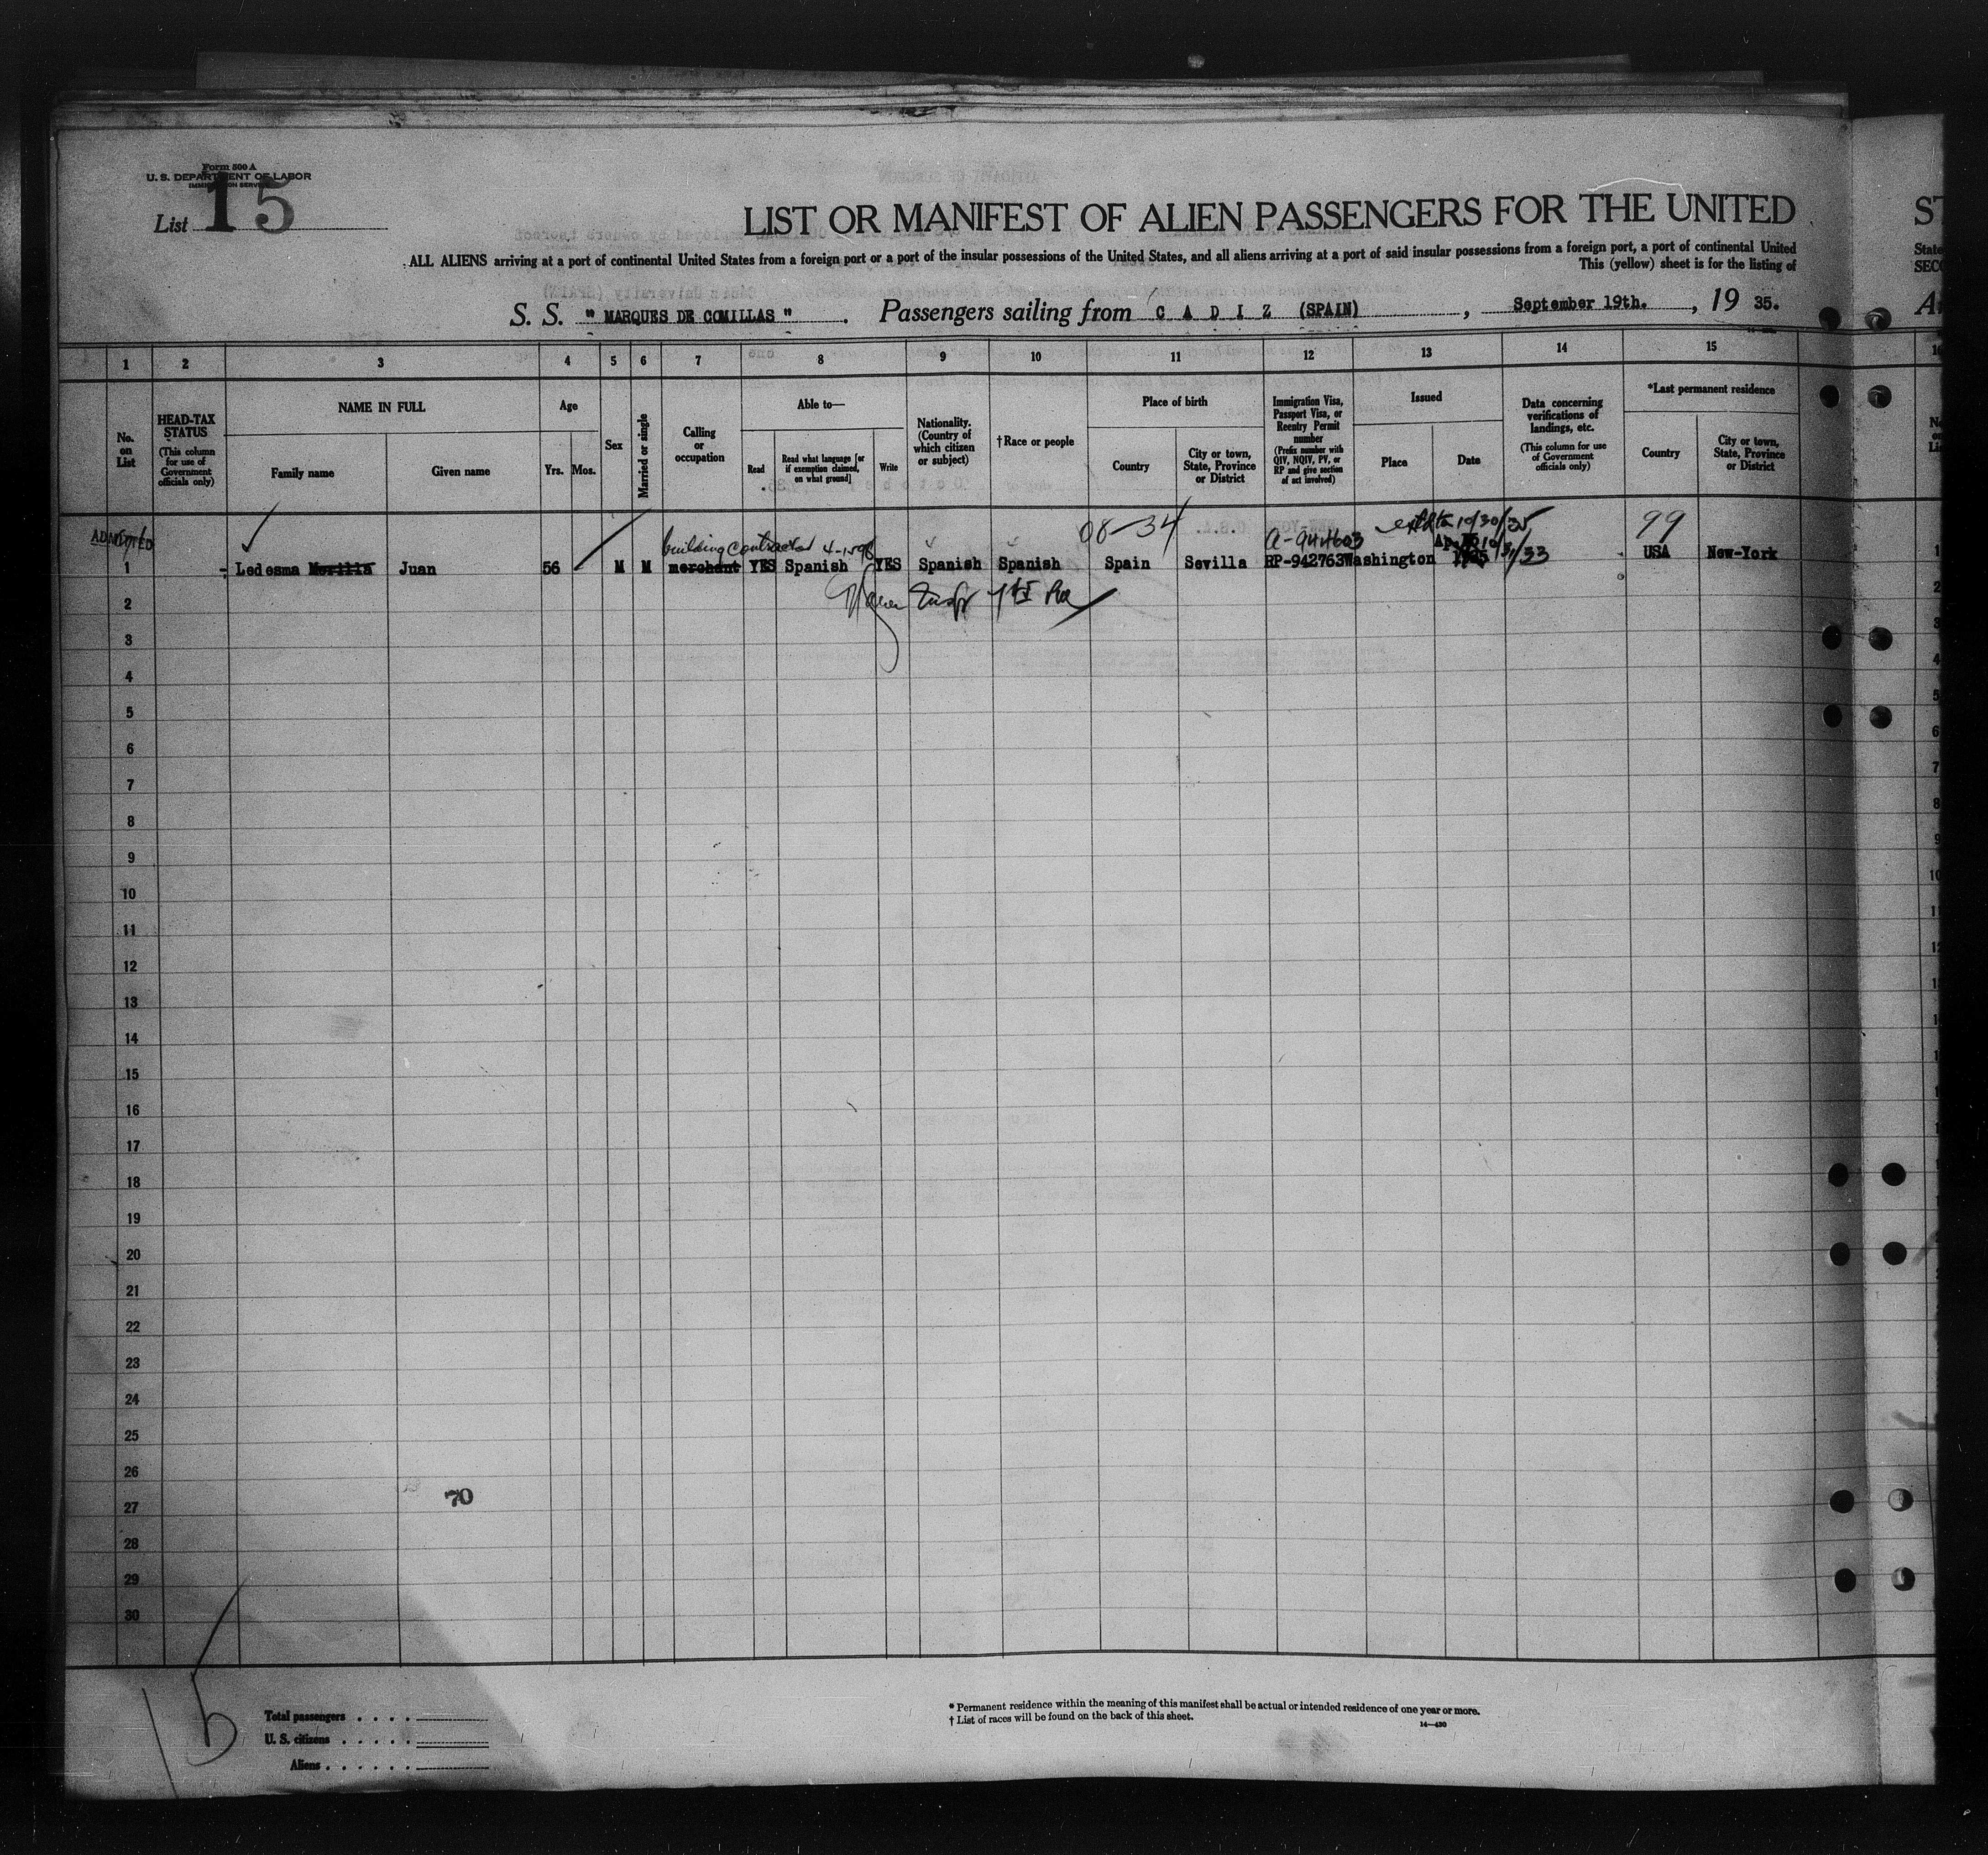 Form 500 A
U. S. DEPARTMENT OF LABOR
IMMIGRATION SERVICE
List 15
LIST OR MANIFEST OF ALIEN PASSENGERS FOR THE UNITED
ST
ALL ALIENS arriving at a port of continental United States from a foreign port or a port of the insular possessions of the United States, and all aliens arriving at a port of said insular possessions from a foreign port, a port of continental United
State
This (yellow) sheet is for the listing of
SECO
S. S. " MARQUES DE COMILLAS " . Passengers sailing from C A D I Z (SPAIN) , September 19th. , 19 35.
1 2 3 4 5 6 7 8 9 10 11 12 13 14 15
No. on List
HEAD-TAX STATUS (This column for use of Government officials only)
NAME IN FULL
Family name
Given name
Age
Yrs.
Mos.
Sex
Married or single
Calling or occupation
Able to—
Read
Read what language [or if exemption claimed, on what ground]
Write
Nationality. (Country of which citizen or subject)
†Race or people
Place of birth
Country
City or town, State, Province or District
Immigration Visa, Passport Visa, or Reentry Permit number
(Prefix number with QIV, NQIV, PV, or RP and give section of act involved)
Issued
Place
Date
Data concerning verifications of landings, etc.
(This column for use of Government officials only)
*Last permanent residence
Country
City or town, State, Province or District
ADMITTED
building contractor 4-1596
08-34
a-944603
10/30/35
99
1 Ledesma Morilla Juan 56 M M merchant YES Spanish YES Spanish Spanish Spain Sevilla RP-942763 Washington 10/31/33 USA New-York
2
3
4
5
6
7
8
9
10
11
12
13
14
15
16
17
18
19
20
21
22
23
24
25
26
70
27
28
29
30
15
Total passengers . . . .
U. S. citizens . . . . .
Aliens . . . . . .
* Permanent residence within the meaning of this manifest shall be actual or intended residence of one year or more.
† List of races will be found on the back of this sheet.
14—430